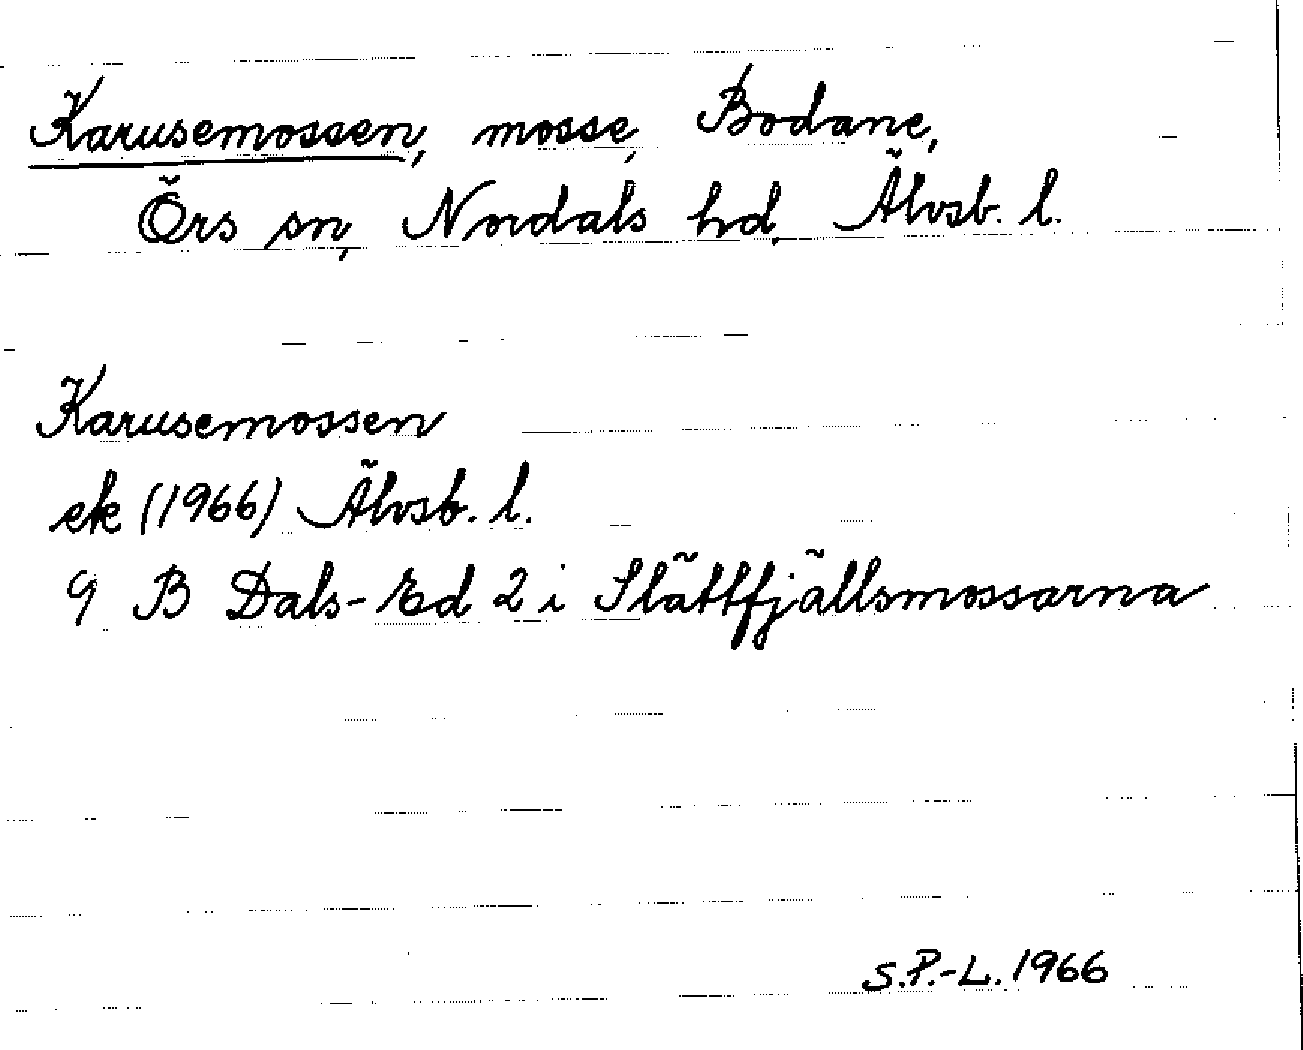 Karusemossen, mosse, Bodane,
Örs sn, Nordals hd, Älvsb. l.
Karusemossen
ek (1966) Älvsb. l.
9 B Dals-Ed 2 i Slättfjällsmossarna
S.P.-L. 1966